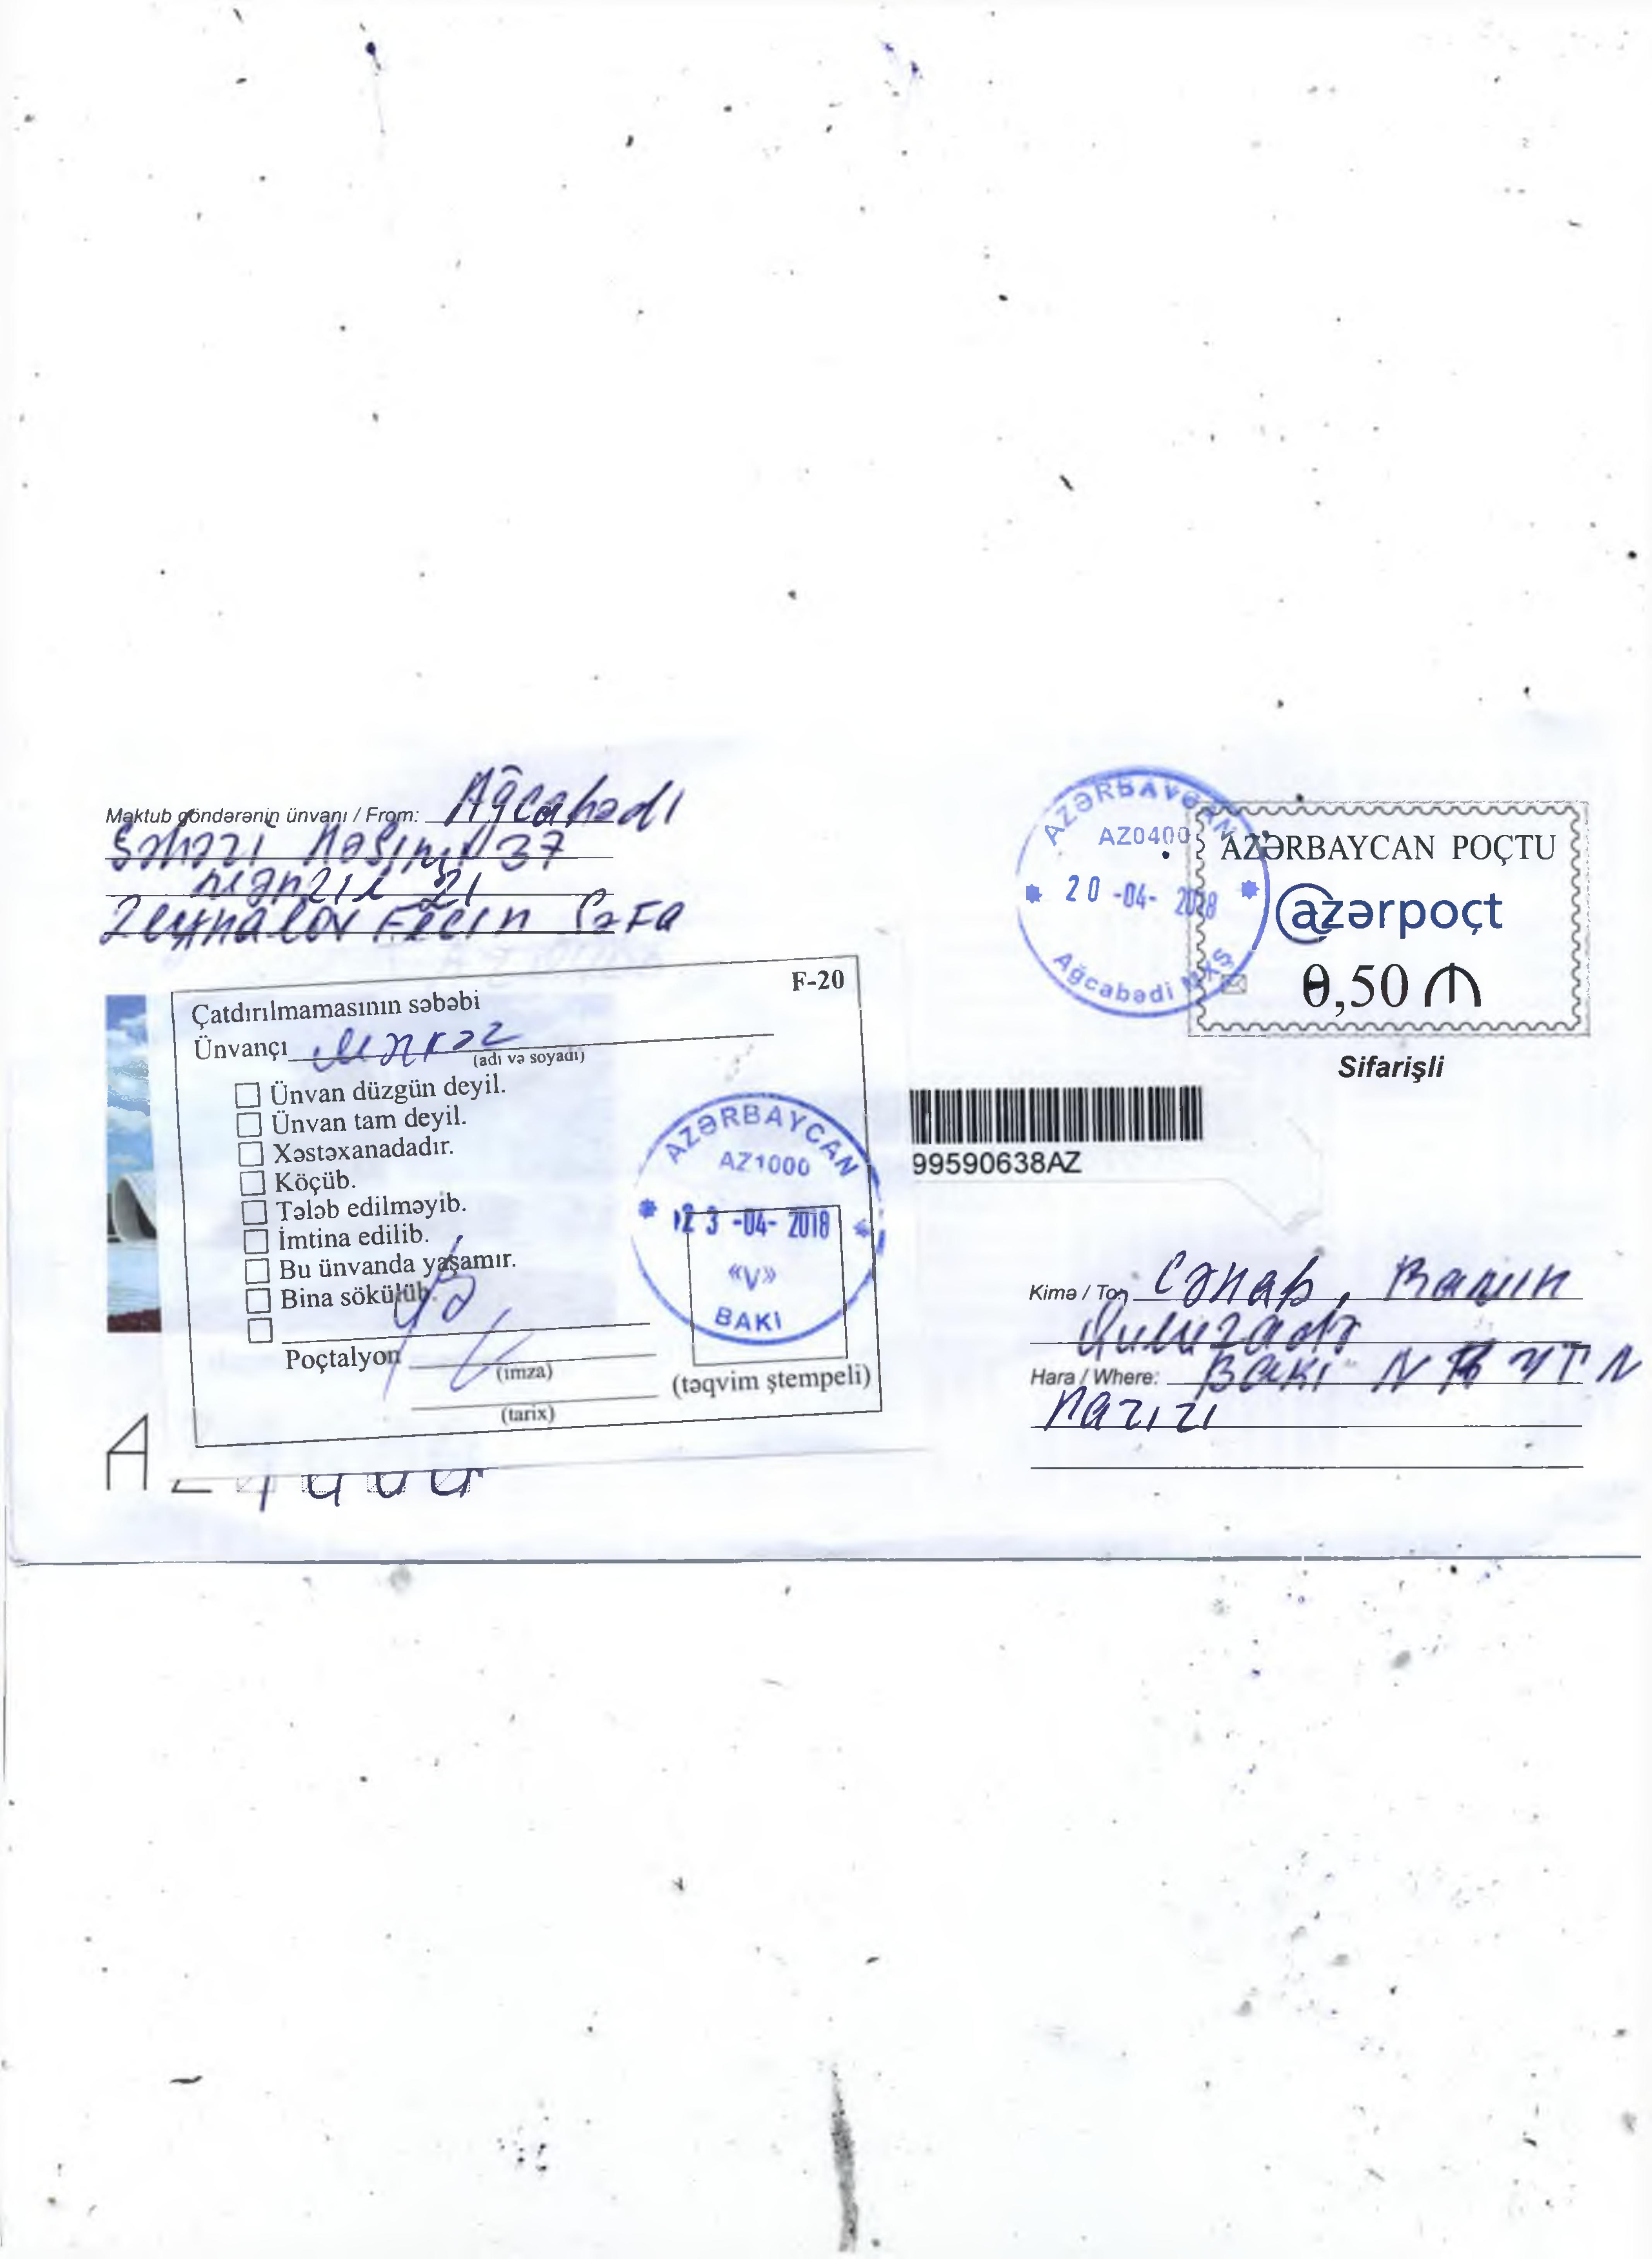 Məktub göndərənin ünvanı / From: Ağcabədi
Şəhəri 37
mənzil 21
Zeynalov Elçin
AZƏRBAYCAN
AZ0400
20-04-2018
Ağcabədi
AZƏRBAYCAN POÇTU
@azərpoçt
0,50 ₼
Sifarişli
F-20
Çatdırılmamasının səbəbi
Ünvançı
(adı və soyadı)
Ünvan düzgün deyil.
Ünvan tam deyil.
Xəstəxanadadır.
Köçüb.
Tələb edilməyib.
İmtina edilib.
Bu ünvanda yaşamır.
Bina sökülüb.
Poçtalyon
(imza)
(tarix)
(təqvim ştempeli)
AZƏRBAYCAN
AZ1000
23-04-2018
«V»
BAKI
99590638AZ
Kimə / To: Cənab, Ramin
Quluzadə
Hara / Where: Bakı